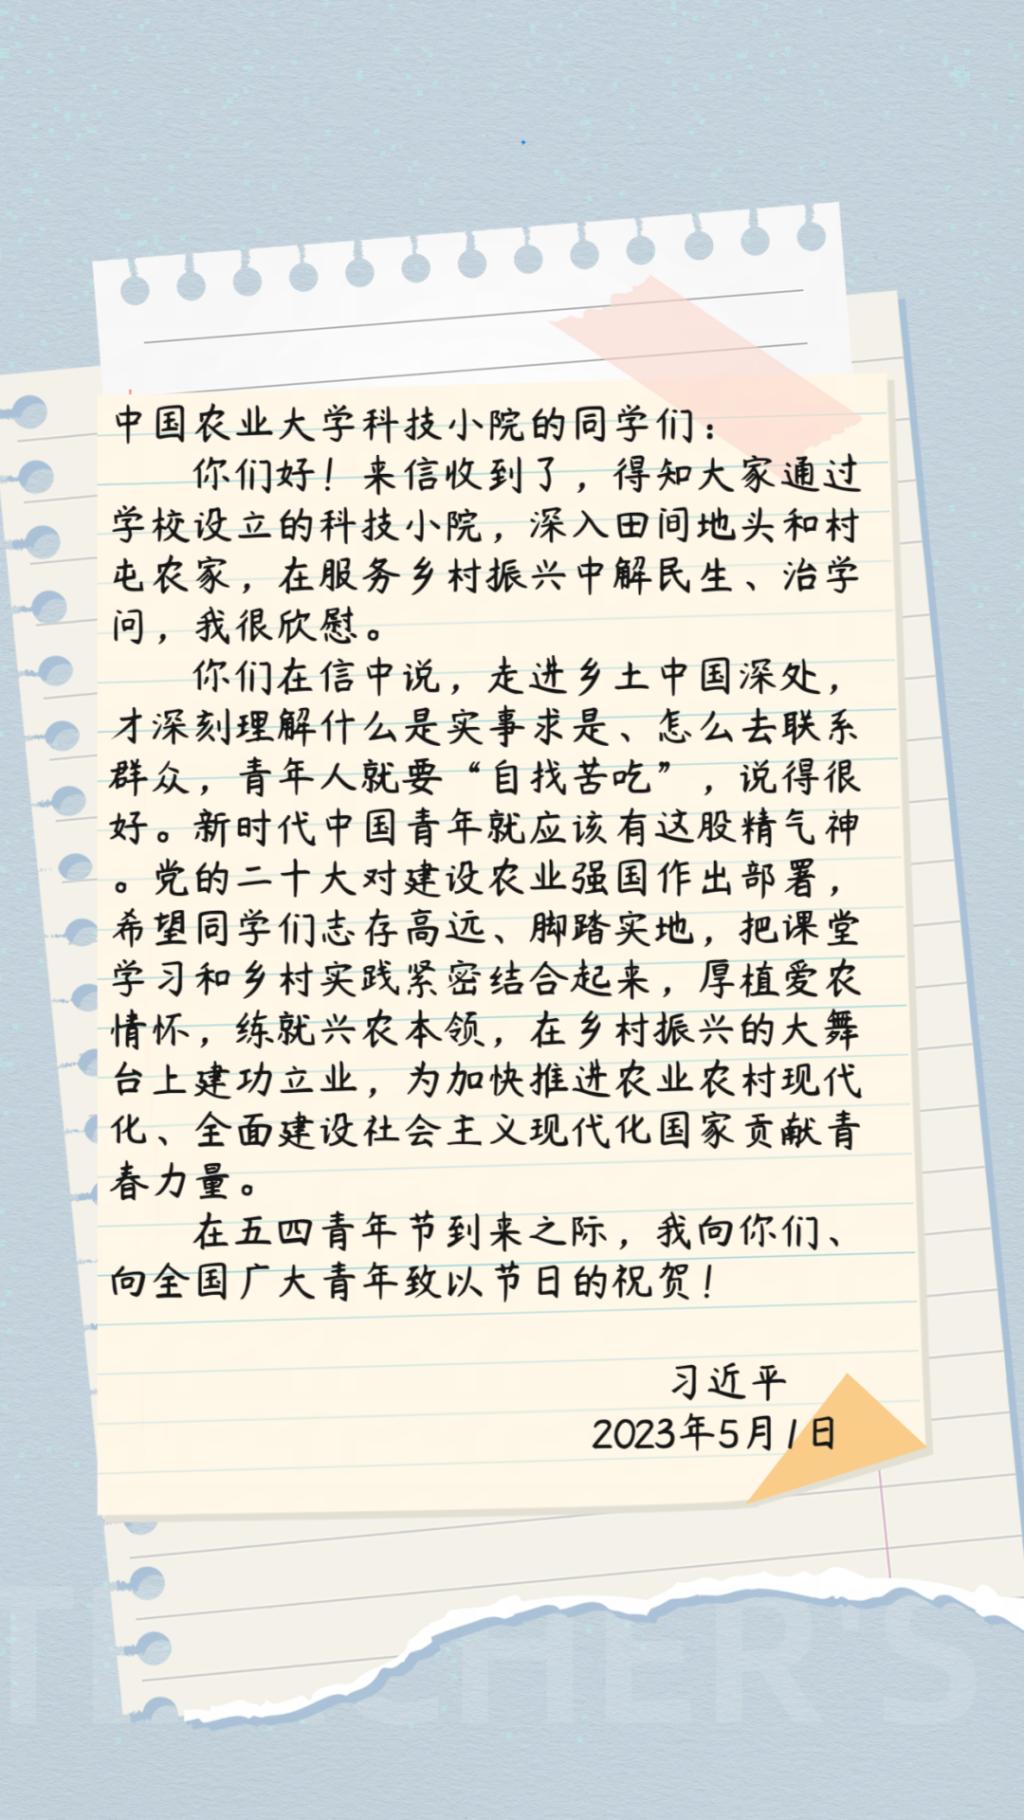 中国农业大学科技小院的同学们：
你们好！来信收到了，得知大家通过
学校设立的科技小院，深入田间地头和村
屯农家，在服务乡村振兴中解民生、治学
问，我很欣慰。
你们在信中说，走进乡土中国深处，
才深刻理解什么是实事求是、怎么去联系
群众，青年人就要“自找苦吃”，说得很
好。新时代中国青年就应该有这股精气神
。党的二十大对建设农业强国作出部署，
希望同学们志存高远、脚踏实地，把课堂
学习和乡村实践紧密结合起来，厚植爱农
情怀，练就兴农本领，在乡村振兴的大舞
台上建功立业，为加快推进农业农村现代
化、全面建设社会主义现代化国家贡献青
春力量。
在五四青年节到来之际，我向你们、
向全国广大青年致以节日的祝贺！
习近平
2023年5月1日
TEACHER'S